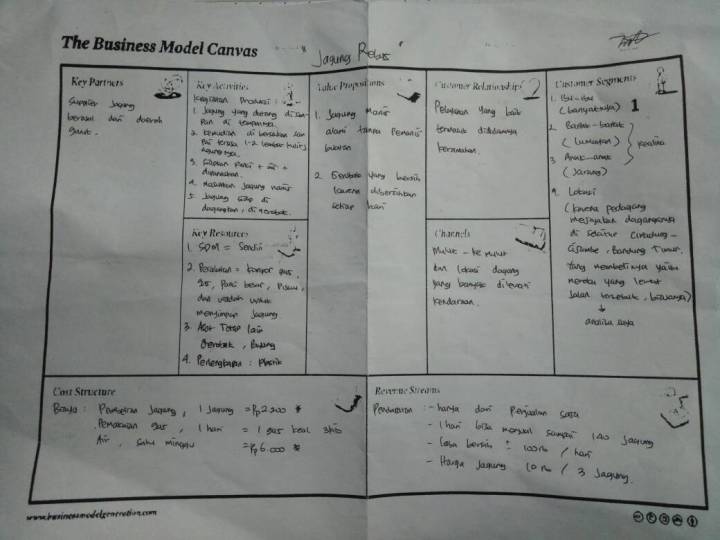 The Business Model Canvas
"Jagung Rebus"
Key Partners
Supplier Jagung
berasal dari daerah
Garut.
Key Activities
Kegiatan Produksi :
1. Jagung yang datang disim-
pan di tempatnya.
2. Kemudian di bersihkan sam-
pai tersisa 1-2 lembar kulit
jagungnya.
3. Siapkan Panci + air +
4. Masukkan jagung manis
5. Jagung siap di
dagangkan, di gerobak.
Value Propositions
1. Jagung Manis
alami tanpa Pemanis
buatan
2. Gerobak yang bersih
karena dibersihkan
setiap hari
Customer Relationships
Pelayanan yang baik
termasuk didalamnya
keramahan.
Customer Segments
1. Ibu-ibu
(banyaknya) 1
2. Bapak-bapak
(lumayan)
3. Anak-anak
(Jarang)
4. Lokasi
(karena pedagang
menjajakan dagangannya
di sekitar Cintadung-
Cisambe, Bandung Timur.
Yang membelinya yaitu
mereka yang lewat
jalan tersebut, biasanya)
analisa saya
Key Resources
1. SDM = Sendiri
2. Peralatan = kompor gas,
gas, Panci besar, Pisau,
dan wadah untuk
menyimpan Jagung.
3. Aset Tetap lain
Gerobak, Payung
4. Perlengkapan : Plastik
Channels
Mulut - ke mulut
dan lokasi dagang
yang banyak dilewati
kendaraan.
Cost Structure
Biaya : Pembelian Jagung, 1 Jagung = Rp2.200
Pemakaian gas, 1 hari = 1 gas kecil 3kg
Air, satu minggu = Rp6.000
Revenue Streams
Pendapatan : - hanya dari Penjualan saja
- 1 hari bisa menjual sampai 140 Jagung
- Laba bersih ± 100rb / hari
- Harga Jagung 10rb / 3 Jagung.
www.businessmodelgeneration.com